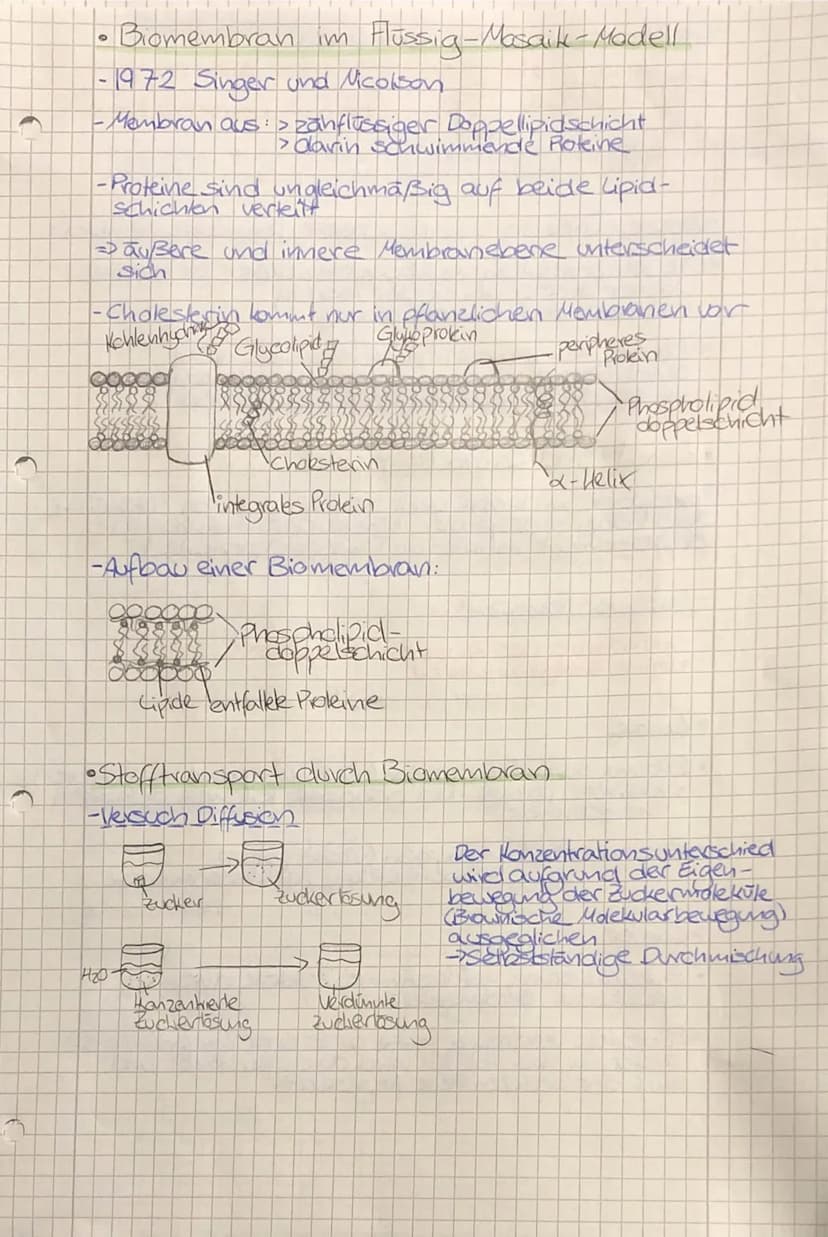 • Biomembran im Flüssig-Mosaik-Modell
- 1972 Singer und Nicolson
- Membran aus: > zähflüssiger Doppellipidschicht
> darin schwimmende Proteine
- Proteine sind ungleichmäßig auf beide Lipid-
schichten verteilt
=> äußere und innere Membranebene unterscheidet
sich
- Cholesterin kommt nur in pflanzlichen Membranen vor
Kohlenhydrat
Glycolipid
Glykoprotein
peripheres
Protein
Phospholipid
doppelschicht
Cholesterin
α-Helix
integrales Protein
- Aufbau einer Biomembran:
Phospholipid-
doppelschicht
Lipide
entfaltete Proteine
• Stofftransport durch Biomembran
- Versuch Diffusion
Zucker
Zuckerlösung
Der Konzentrationsunterschied
wird aufgrund der Eigen-
bewegung der Zuckermoleküle
(Brownische Molekularbewegung)
ausgeglichen
-> Selbstständige Durchmischung
H2O
Konzentrierte
Zuckerlösung
Verdünnte
Zuckerlösung